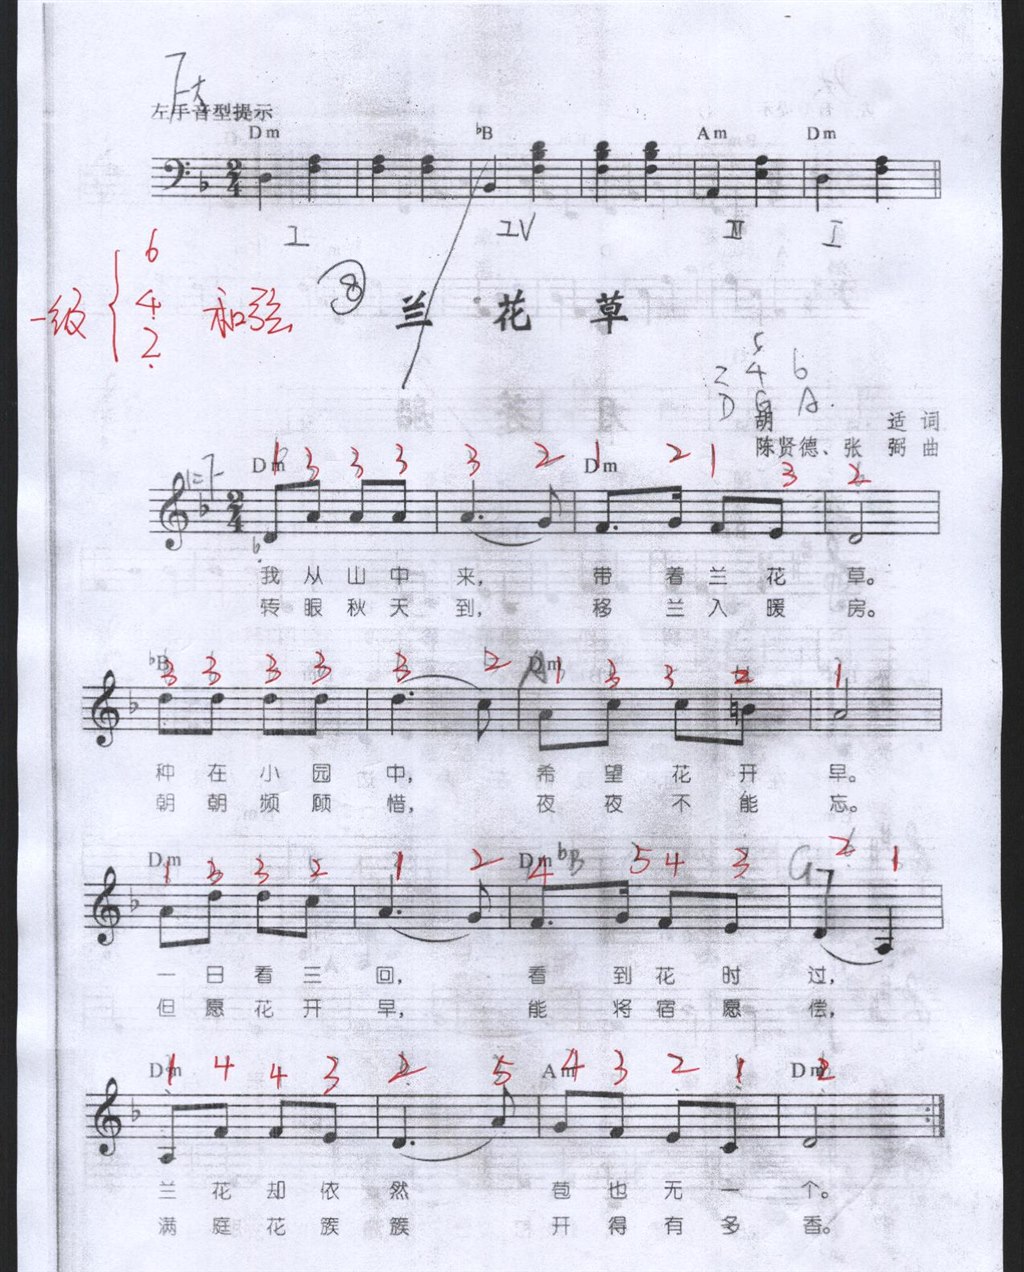 下大
左手音型提示
Dm ♭B Am Dm
I IV III I
6
一级 4 和弦 ⑧ 兰 花 草
2
5
2 4 6
D G A.
胡 适 词
陈贤德、张 弼 曲
Dm 1 3 3 3 3 2 Dm 1 2 1 3 2
2/4
我 从 山 中 来, 带 着 兰 花 草。
转 眼 秋 天 到, 移 兰 入 暖 房。
♭B 3 3 3 3 3 2 Dm 1 3 3 2 1
种 在 小 园 中, 希 望 花 开 早。
朝 朝 频 顾 惜, 夜 夜 不 能 忘。
Dm 1 3 3 2 1 2 Dm ♭B 4 5 4 3 G 2 1
一 日 看 三 回, 看 到 花 时 过,
但 愿 花 开 早, 能 将 宿 愿 偿,
Dm 1 4 4 3 2 5 Am 4 3 2 1 Dm 2
兰 花 却 依 然 苞 也 无 一 个。
满 庭 花 簇 簇 开 得 有 多 香。